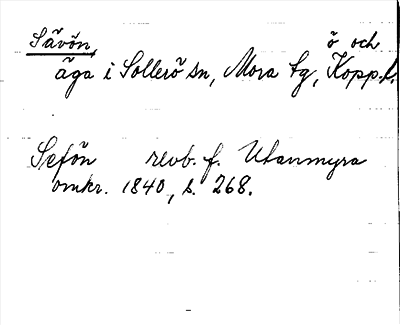 Sävön, ö och
äga i Sollerö sn, Mora tg, Kopp.l.
Sefön revb. f. Utanmyra
omkr. 1840, s. 268.